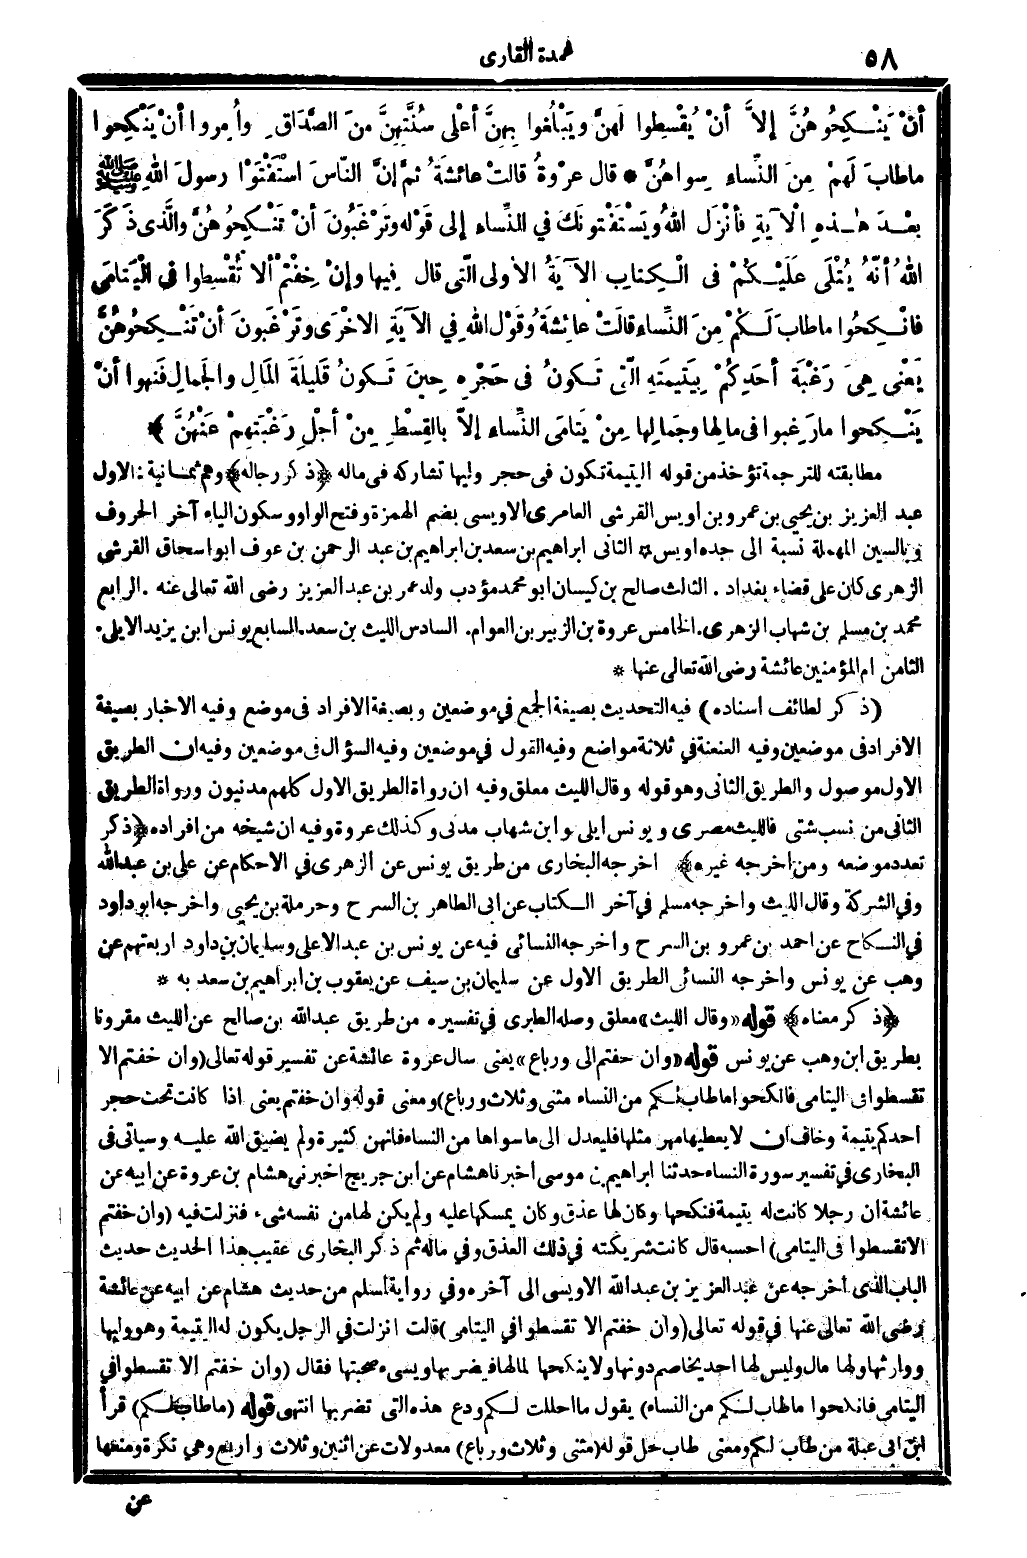 ٥٨
عمدة القارى
أنْ يَنْكِحُوهُنَّ إلاَّ أنْ يُقْسِطُوا لَهنَّ ويَبْلُغُوا بِهِنَّ أعْلى سُنَّتِهِنَّ مِنَ الصَّدَاقِ وأُمِروا أنْ يَنْكِحُوا
ماطابَ لَهمْ مِنَ النِّساءِ سِواهُنَّ * قال عرْوةُ قالتْ عائشَةُ ثمَّ إنَّ النّاسَ اسْتَفْتَوْا رسولَ اللهِ ﷺ
بعْدَ هٰذِهِ الْآيةِ فأنْزَلَ اللهُ ويَسْتَفْتونَكَ فى النِّساءِ إلى قَوْله وتَرْغَبُونَ أنْ تَنْكِحُوهُنَّ والَّذى ذَكَرَ
اللهُ أنَّهُ يُتْلَى عَلَيْكُمْ فى الْكِتابِ الآيَةُ الأولى الَّتى قال فِيها وإنْ خِفْتمْ ألا تُقْسِطوا فى الْيَتامَى
فانْكِحُوا ماطابَ لَكُمْ مِنَ النِّساءِ قالَتْ عائِشَةُ وَقَوْل اللهِ فِي الآيَةِ الاخْرَى وتَرْغَبونَ أنْ تَنْكِحُوهُنَّ
يَعْنِى هِىَ رَغْبَة أحَدِكُمْ بِيَتِيمَتِهِ الَّتى تَكونُ فى حَجْرِهِ حِينَ تَكونُ قَلِيلَةَ المَالِ والجَمالِ فَنهوا أنْ
يَنْكِحوا مارَغِبوا فى مالِها وجَمَالِها مِنْ يَتامَى النِّساءِ إلاّ بالقِسْطِ مِنْ أجْلِ رَغْبَتِهِمْ عَنْهُنَّ ﴾
مطابقته للترجمة تؤخذ من قوله اليتيمة تكون فى حجر وليها تشاركه فى ماله ﴿ ذكر رجاله ﴾ وهم ثمانية : الاول
عبد العزيز بن يحيى بن عمرو بن اويس القرشى العامرى الاويسى بضم الهمزة وفتح الواو وسكون الياء آخر الحروف
وبالسين المهملة نسبة الى جده اويس * الثانى ابراهيم بن سعد بن ابراهيم بن عبد الرحمن بن عوف ابو اسحاق القرشى
الزهرى كان على قضاء بغداد . الثالث صالح بن كيسان ابو محمد مؤدب ولد عمر بن عبد العزيز رضى الله تعالى عنه . الرابع
محمد بن مسلم بن شهاب الزهرى . الخامس عروة بن الزبير بن العوام . السادس الليث بن سعد . السابع يونس ابن يزيد الايلى .
الثامن ام المؤمنين عائشة رضى الله تعالى عنها *
( ذكر لطائف اسناده ) فيه التحديث بصيغة الجمع في موضعين وبصيغة الافراد فى موضع وفيه الاخبار بصيغة
الافراد فى موضعين وفيه العنعنة في ثلاثة مواضع وفيه القول في موضعين وفيه السؤال فى موضعين وفيه ان الطريق
الاول موصول والطريق الثانى وهو قوله وقال الليث معلق وفيه ان رواة الطريق الاول كلهم مدنيون ورواة الطريق
الثانى من نسب شتى فالليث مصرى ويونس ايلى وابن شهاب مدنى وكذلك عروة وفيه ان شيخه من افراده ﴿ ذكر
تعدد موضعه ومن اخرجه غيره ﴾ اخرجه البخارى من طريق يونس عن الزهرى في الاحكام عن على بن عبد الله
وفي الشركة وقال الليث واخرجه مسلم في آخر الكتاب عن ابى الطاهر بن السرح وحرملة بن يحيى واخرجه ابو داود
في النكاح عن احمد بن عمرو بن السرح واخرجه النسائى فيه عن يونس بن عبد الاعلى وسليمان بن داود اربعتهم عن
وهب عن يونس واخرجه النسائى الطريق الاول عن سليمان بن سيف عن يعقوب بن ابراهيم بن سعد به *
﴿ ذكر معناه ﴾ قوله «وقال الليث» معلق وصله الطبرى في تفسيره من طريق عبد الله بن صالح عن الليث مقرونا
بطريق ابن وهب عن يونس قوله «وان خفتم الى ورباع» يعنى سال عروة عائشة عن تفسير قوله تعالى (وان خفتم الا
تقسطوا فى اليتامى فانكحوا ما طاب لكم من النساء مثنى وثلاث ورباع) ومعنى قوله وان خفتم يعنى اذا كانت تحت حجر
احدكم يتيمة وخاف ان لا يعطيها مهر مثلها فليعدل الى ما سواها من النساء فانهن كثيرة ولم يضيق الله عليه وسياتى فى
البخارى في تفسير سورة النساء حدثنا ابراهيم بن موسى أخبرنا هشام عن ابن جريج اخبرنى هشام بن عروة عن ابيه عن
عائشة ان رجلا كانت له يتيمة فنكحها وكان لها عذق وكان يمسكها عليه ولم يكن لها من نفسه شىء فنزلت فيه (وان خفتم
الا تقسطوا فى اليتامى) احسبه قال كانت شريكته في ذلك العذق وفي ماله ثم ذكر البخارى عقيب هذا الحديث حديث
الباب الذى اخرجه عن عبد العزيز بن عبد الله الاويسى الى آخره وفي رواية لمسلم من حديث هشام عن ابيه عن عائشة
رضى الله تعالى عنها في قوله تعالى (وان خفتم الا تقسطوا في اليتامى) قالت انزلت في الرجل يكون له اليتيمة وهو وليها
ووارثها ولها مال وليس لها احد يخاصم دونها ولا ينكحها لمالها فيضر بها ويسىء صحبتها فقال (وان خفتم الا تقسطوا في
اليتامى فانكحوا ما طاب لكم من النساء) يقول ما احللت لكم ودع هذه التى تضر بها انتهى قوله (ما طاب لكم) قرأ
ابن ابى عبلة من طاب لكم ومعنى طاب حل قوله (مثنى وثلاث ورباع) معدولات عن اثنين وثلاث واربع وهي نكرة ومنعها
عن